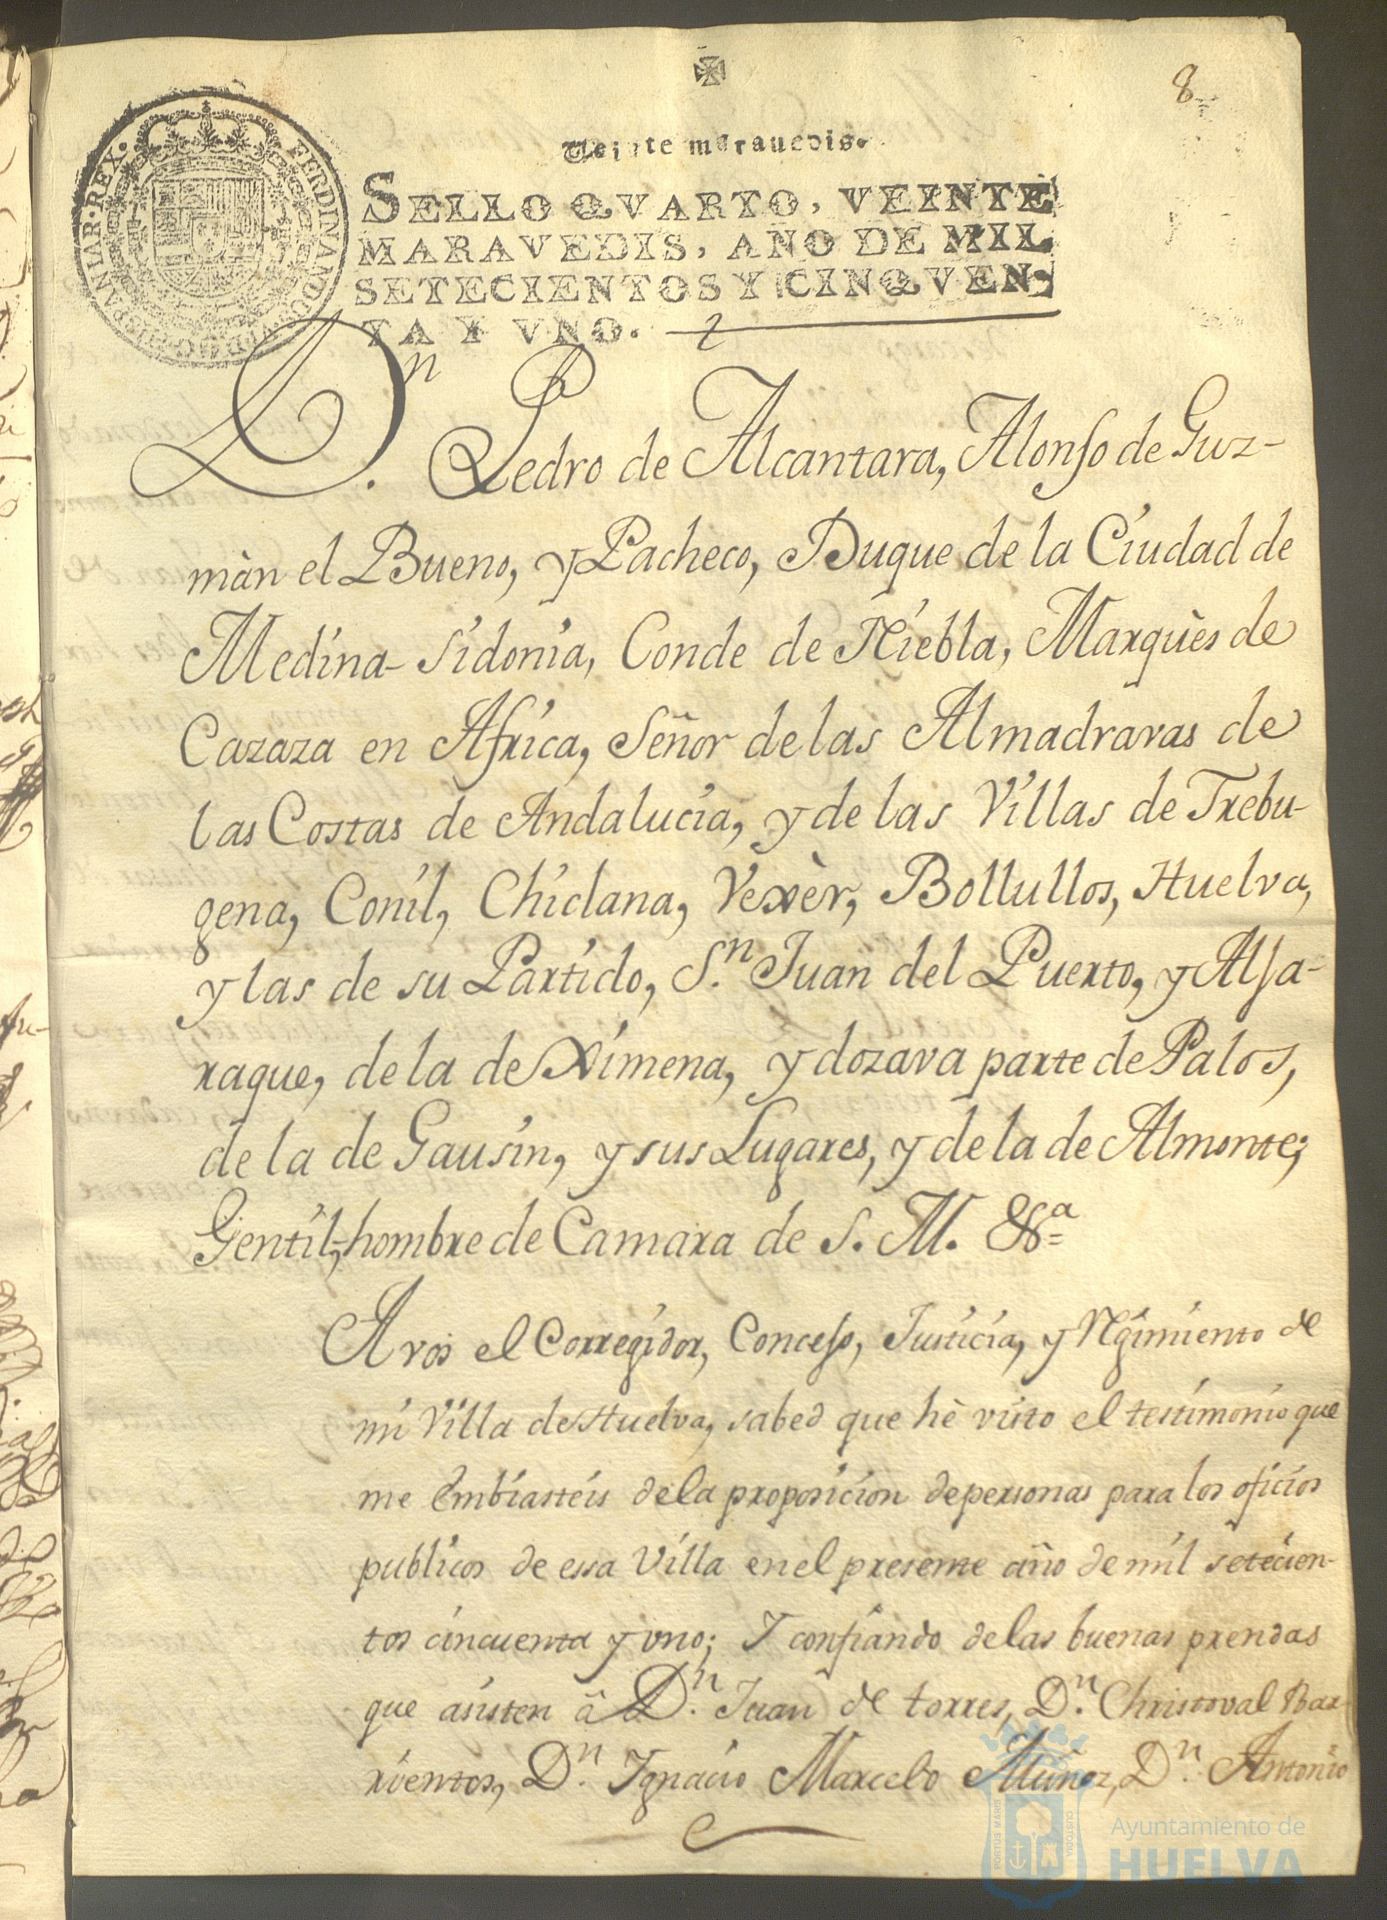 8
Veinte marauedis.
SELLO QVARTO, VEINTE
MARAVEDIS, AÑO DE MIL
SETECIENTOS Y CINQVEN-
TA Y VNO.
FERDINANDUS VI D.G. HISPANIAR. REX.
D.n Pedro de Alcantara, Alonso de Guz-
màn el Bueno, y Pacheco, Duque de la Ciudad de
Medina-Sidonia, Conde de Niebla, Marquès de
Cazaza en Africa, Señor de las Almadravas de
las Costas de Andalucia, y de las Villas de Trebu-
gena, Conil, Chiclana, Vexèr, Bollullos, Huelva,
y las de su Partido, S.n Juan del Puerto, y Alja-
raque, de la de Ximena, y dozava parte de Palos,
de la de Gausin, y sus Lugares, y de la de Almonte;
Gentil-hombre de Camara de S. M. &a
A vos el Corregidor, Concejo, Justicia, y Rgimiento de
mi Villa de Huelva, sabed que hè visto el testimonio que
me embiasteis de la proposicion de personas para los oficios
publicos de essa Villa en el presente año de mil setecien-
tos cincuenta y vno; Y confiando de las buenas prendas
que asisten â D.n Juan de torres, D.n Christoval Bar-
rientos, D.n Ignacio Marcelo Muñoz, D.n Antonio
PORTUS MARIS
CUSTODIA
Ayuntamiento de
HUELVA